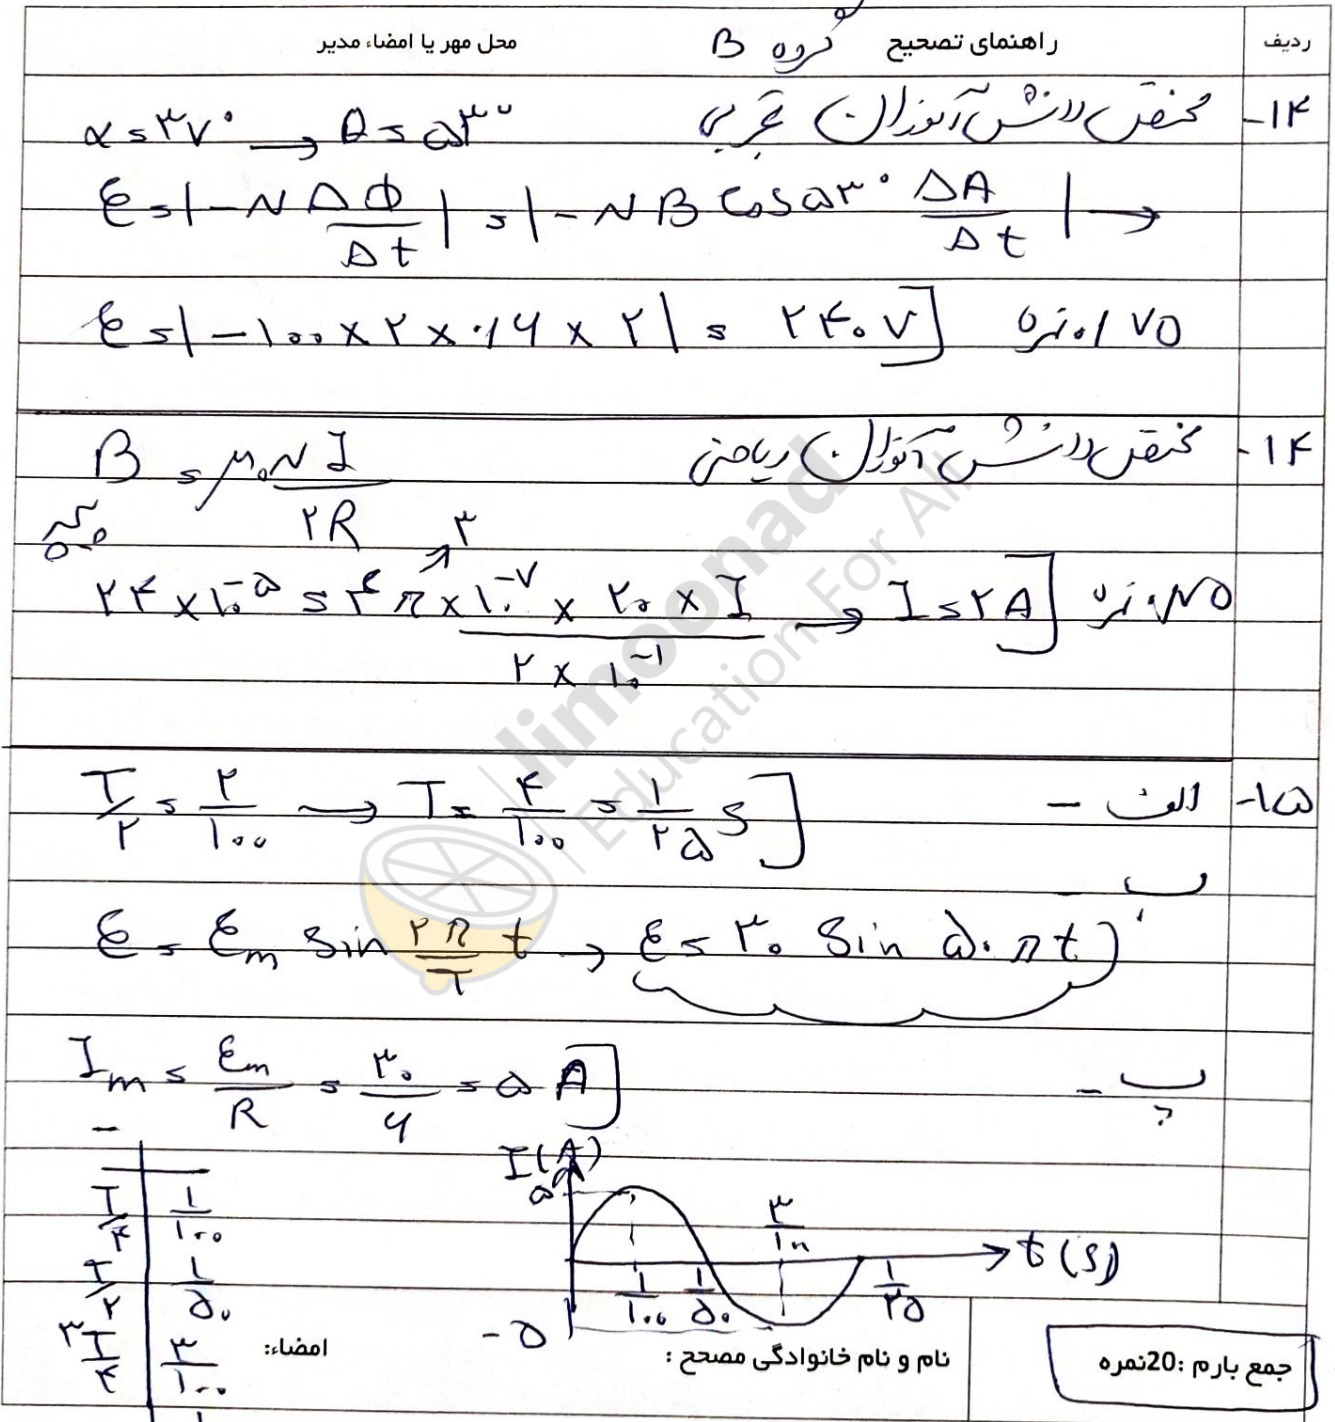 ردیف راهنمای تصحیح گروه B محل مهر یا امضاء مدیر
۱۴- مختص دانش آموزان تجربی
α = ۳۷° → θ = ۵۳°
ε = |-N ΔΦ/Δt| = |-N B Cos ۵۳° ΔA/Δt| →
ε = |-۱۰۰ × ۲ × ۰/۶ × ۲| = ۲۴۰ V ۰/۷۵ نمره
۱۴- مختص دانش آموزان ریاضی
B = μ₀ N I / ۲R
۲۴ × ۱۰⁻⁵ = ۴ π × ۱۰⁻⁷ × ۲۰ × I / ۲ × ۱۰⁻¹ → I = ۲ A ۰/۷۵ نمره
۳
۱۵- الف -
T/۲ = ۲/۱۰۰ → T = ۴/۱۰۰ = ۱/۲۵ s
ب -
ε = εm sin ۲π/T t → ε = ۳۰ Sin ۵۰ πt
پ -
Im = εm/R = ۳۰/۶ = ۵ A
I(A)
۵
T/۴ ۱/۱۰۰
T/۲ ۱/۵۰
۳T/۴ ۳/۱۰۰
۱/۱۰۰ ۱/۵۰ ۱/۲۵ t(s)
-۵
جمع بارم :20نمره
نام و نام خانوادگی مصحح :
امضاء:
limoonad
Education For All